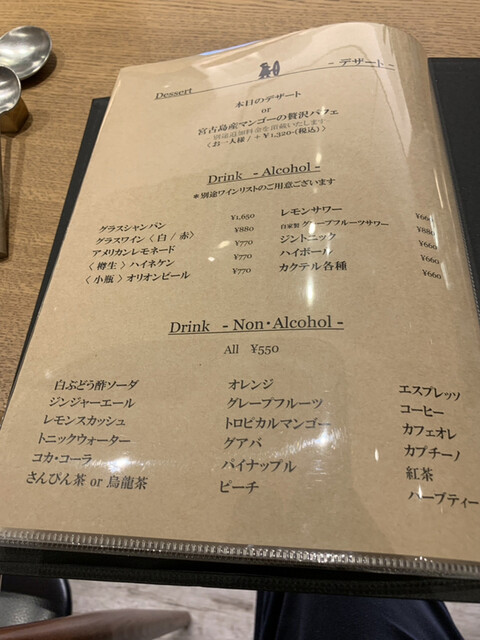 Dessert
- デザート -
本日のデザート
or
宮古島産マンゴーの贅沢パフェ
別途追加料金を頂戴いたします
〈お一人様/+￥1,320-(税込)〉
Drink - Alcohol -
＊別途ワインリストのご用意ございます
グラスシャンパン ¥1,650
グラスワイン〈白/赤〉 ¥880
アメリカンレモネード ¥770
〈樽生〉ハイネケン ¥770
〈小瓶〉オリオンビール ¥770
レモンサワー ¥660
自家製 グレープフルーツサワー ¥880
ジントニック ¥660
ハイボール ¥660
カクテル各種 ¥660
Drink - Non・Alcohol -
All ¥550
白ぶどう酢ソーダ
ジンジャーエール
レモンスカッシュ
トニックウォーター
コカ・コーラ
さんぴん茶 or 烏龍茶
オレンジ
グレープフルーツ
トロピカルマンゴー
グアバ
パイナップル
ピーチ
エスプレッソ
コーヒー
カフェオレ
カプチーノ
紅茶
ハーブティー